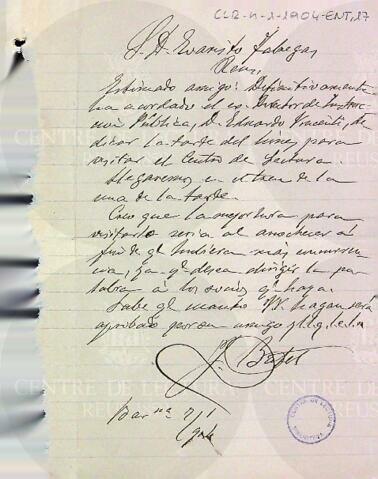 CLR-H-1-1904-ENT,17
S. D. Evaristo Fabregas
Reus
Estimado amigo: Definitivamente
ha acordado el ex. Director de Instruc-
ción Pública, D. Eduardo Vicenti, de-
dicar la tarde del lunes, para
visitar el Centro de Lectura.
Llegaremos en el tren de la
una de la tarde.
Creo que la mejor hora para
visitarlo seria al anochecer al
fin de q. hubiera más concurren-
cia, ya q. desea dirigir la pa-
labra á los socios q. haya.
Sabe q. cuanto VV. hagan será
aprobado por su amigo q. l. e. l. m.
J.
Barna 7/1
CENTRE DE LECTURA
REUS